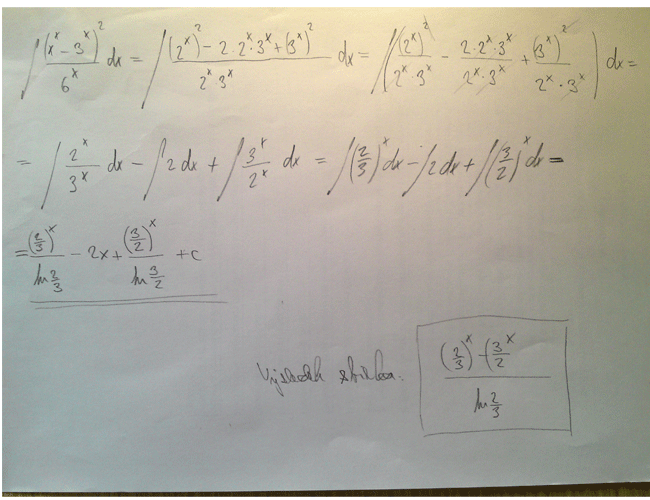 ∫ (x^x - 3^x)^2 / 6^x dx = ∫ ((2^x)^2 - 2·2^x·3^x + (3^x)^2) / (2^x 3^x) dx = ∫ ((2^x)^2 / (2^x·3^x) - (2·2^x·3^x) / (2^x·3^x) + (3^x)^2 / (2^x·3^x)) dx =
= ∫ 2^x / 3^x dx - ∫ 2 dx + ∫ 3^x / 2^x dx = ∫ (2/3)^x dx - ∫ 2 dx + ∫ (3/2)^x dx =
= (2/3)^x / ln 2/3 - 2x + (3/2)^x / ln 3/2 + c
Výsledek : ((2/3)^x - (3/2^x) / ln 2/3